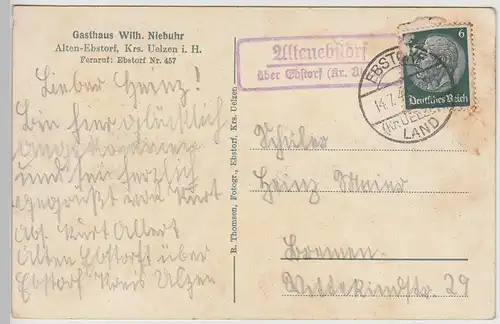 Gasthaus Wilh. Niebuhr
Alten-Ebstorf, Krs. Uelzen i. H.
Fernruf: Ebstorf Nr. 457
Lieber Heinz!
Bin hier glücklich
angekommen
und sei herzlich
gegrüßt von Kurt
Abs. Kurt Albert
Alten Ebstorf über
Ebstorf Kreis Ulzen
R. Thomsen, Fotogr., Ebstorf, Krs. Uelzen
Altenebstorf
über Ebstorf (Kr.
EBSTORF
14.7.4
(Kr. UELZ
LAND
6
Deutsches Reich
Schüler
Heinz Meier
Bremen
Wittekindstr. 29